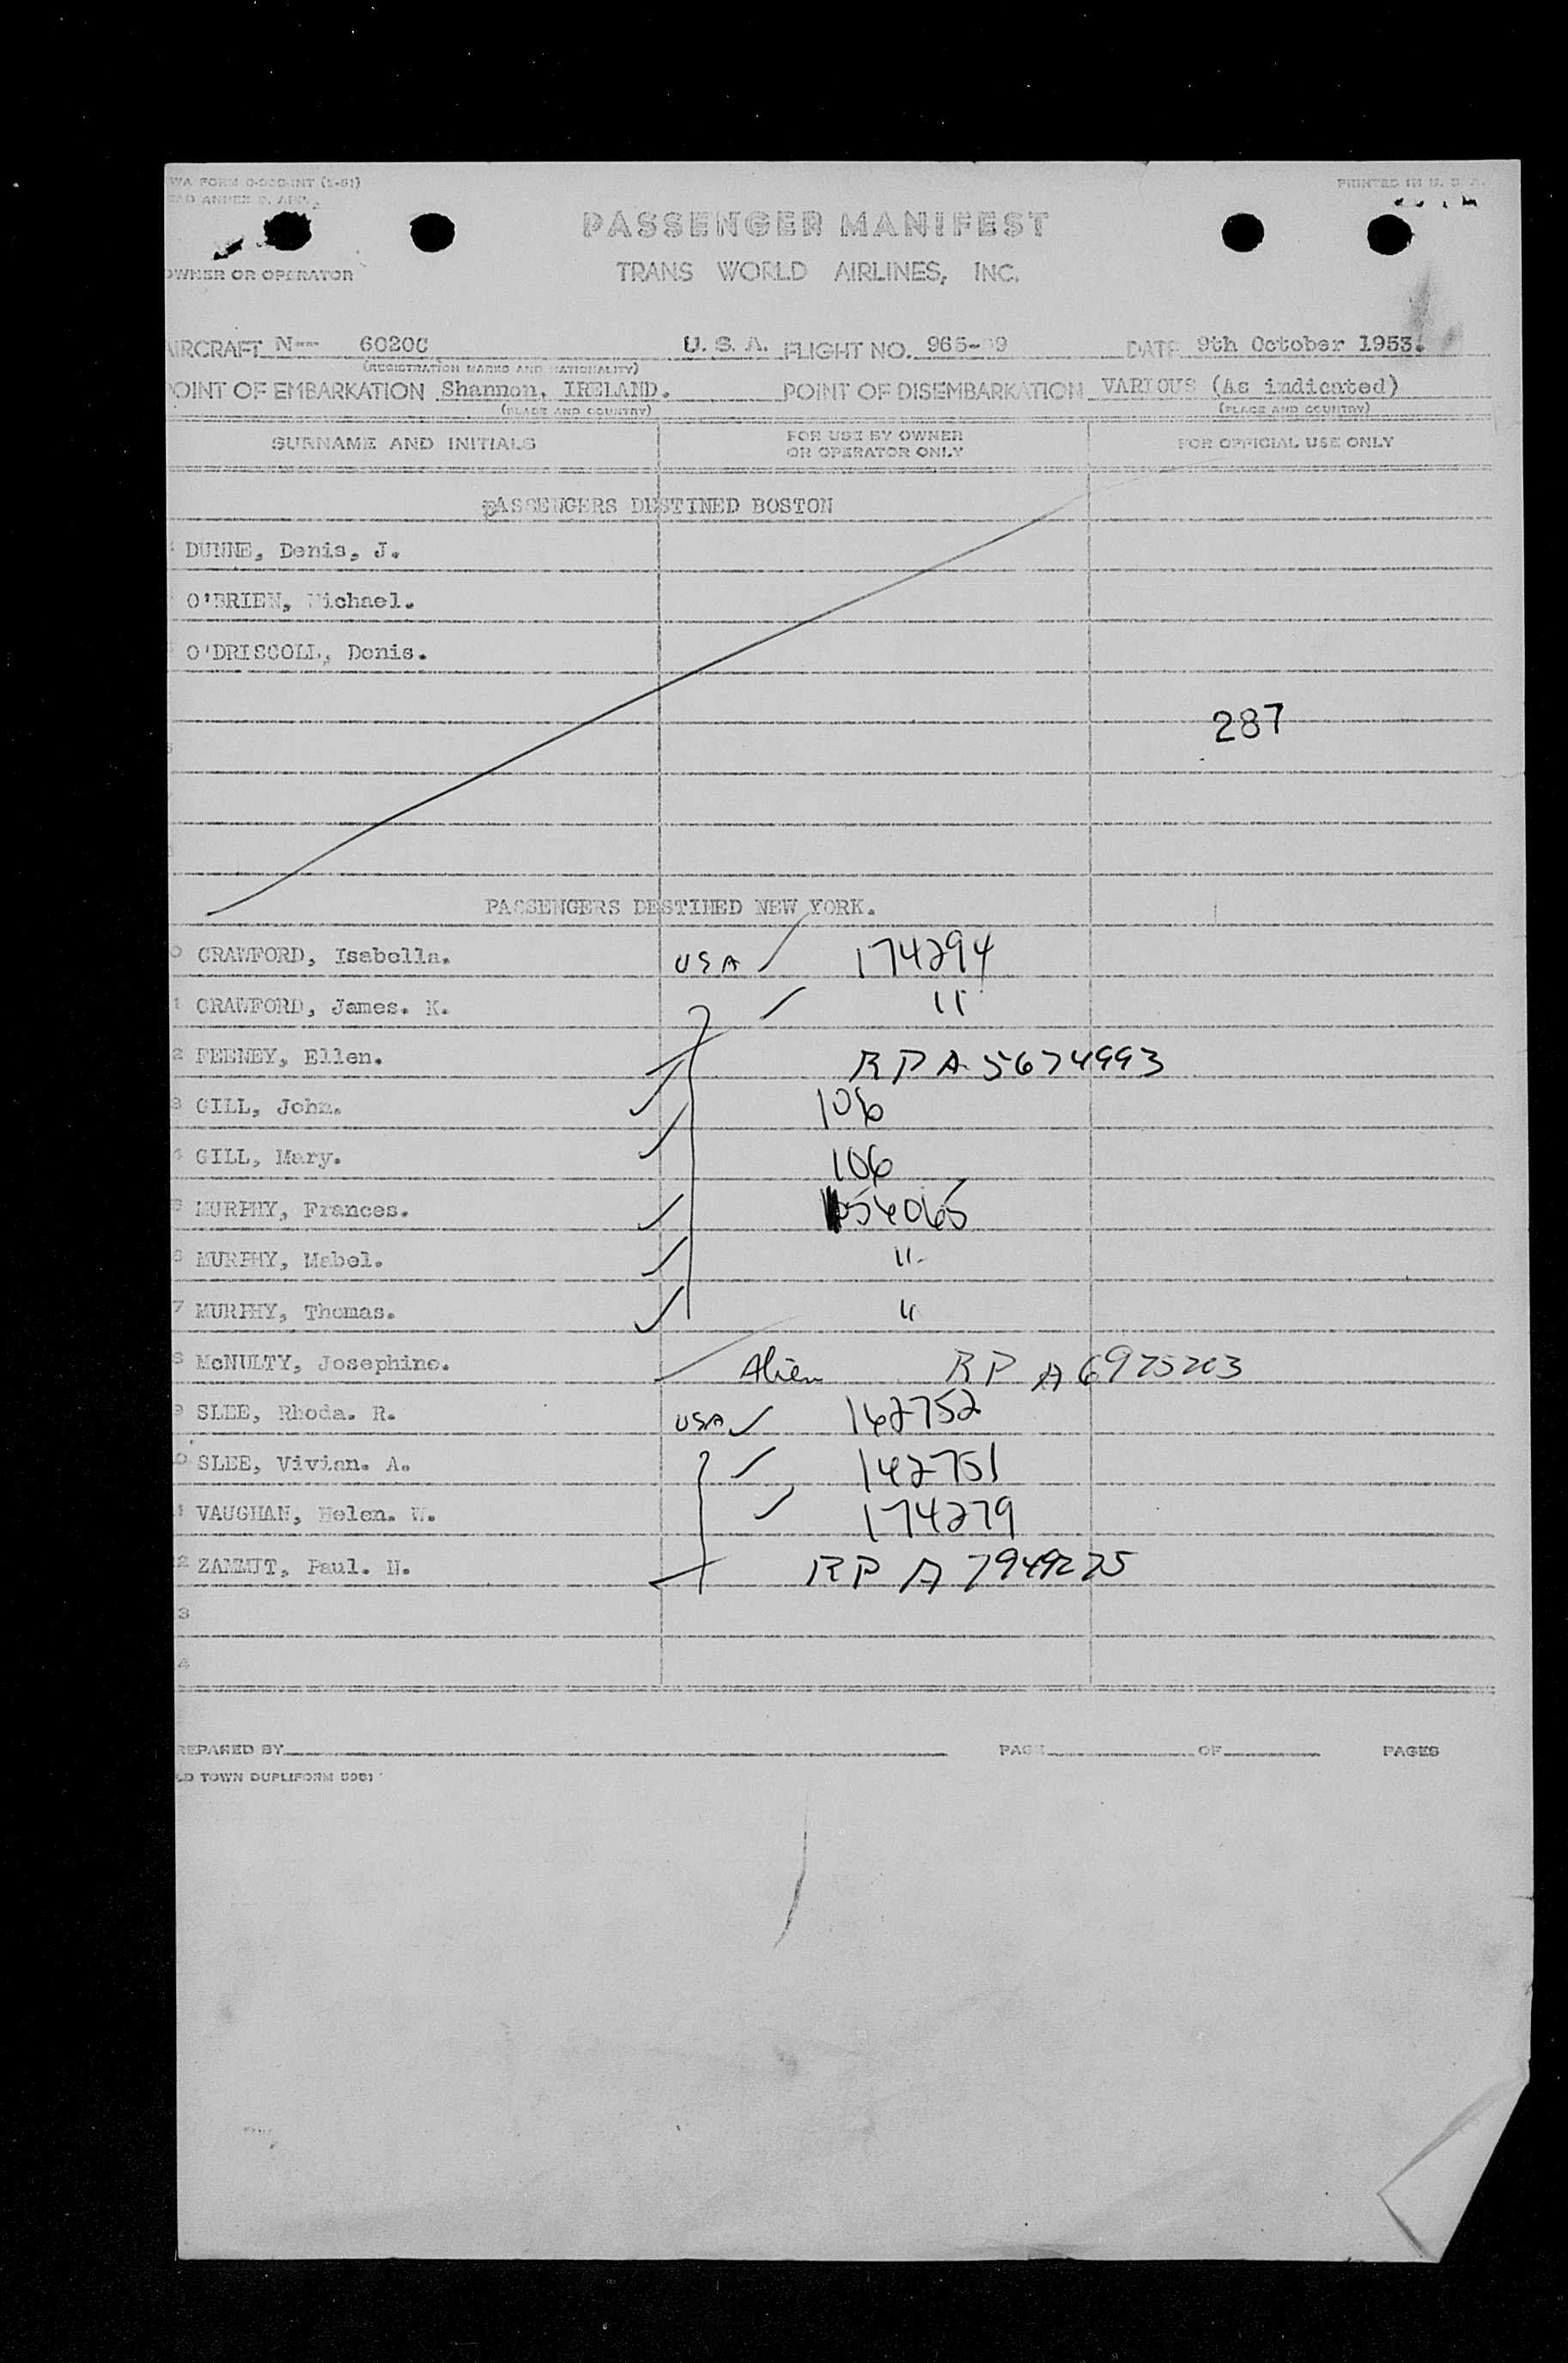 PRINTED IN U. S. A.
PASSENGER MANIFEST
OWNER OR OPERATOR
TRANS WORLD AIRLINES, INC.
AIRCRAFT N-- 6020C U. S. A. FLIGHT NO. DATE 9th October 1953.
(REGISTRATION MARKS AND NATIONALITY)
POINT OF EMBARKATION Shannon, IRELAND. POINT OF DISEMBARKATION VARIOUS (As indicated)
(PLACE AND COUNTRY) (PLACE AND COUNTRY)
SURNAME AND INITIALS FOR USE BY OWNER OR OPERATOR ONLY FOR OFFICIAL USE ONLY
PASSENGERS DESTINED BOSTON
DUNNE, Denis, J.
O'BRIEN, Michael.
O'DRISCOLL, Denis.
287
PASSENGERS DESTINED NEW YORK.
0 CRAWFORD, Isabella. USA ✓ 174294
1 CRAWFORD, James. K. ✓ "
2 FEENEY, Ellen. RP A 5674993
3 GILL, John. ✓ 106
4 GILL, Mary. ✓ 106
5 MURPHY, Frances. ✓
6 MURPHY, Mabel. ✓ "
7 MURPHY, Thomas. ✓ "
8 McNULTY, Josephine. Alien RP A 6975203
9 SLEE, Rhoda. R. USA ✓ 142752
0 SLEE, Vivian. A. ✓ 142751
1 VAUGHAN, Helen. W. ✓ 174279
2 ZAMMIT, Paul. N. RP A 7949275
3
4
REPARED BY PAGE OF PAGES
LD TOWN DUPLIFORM